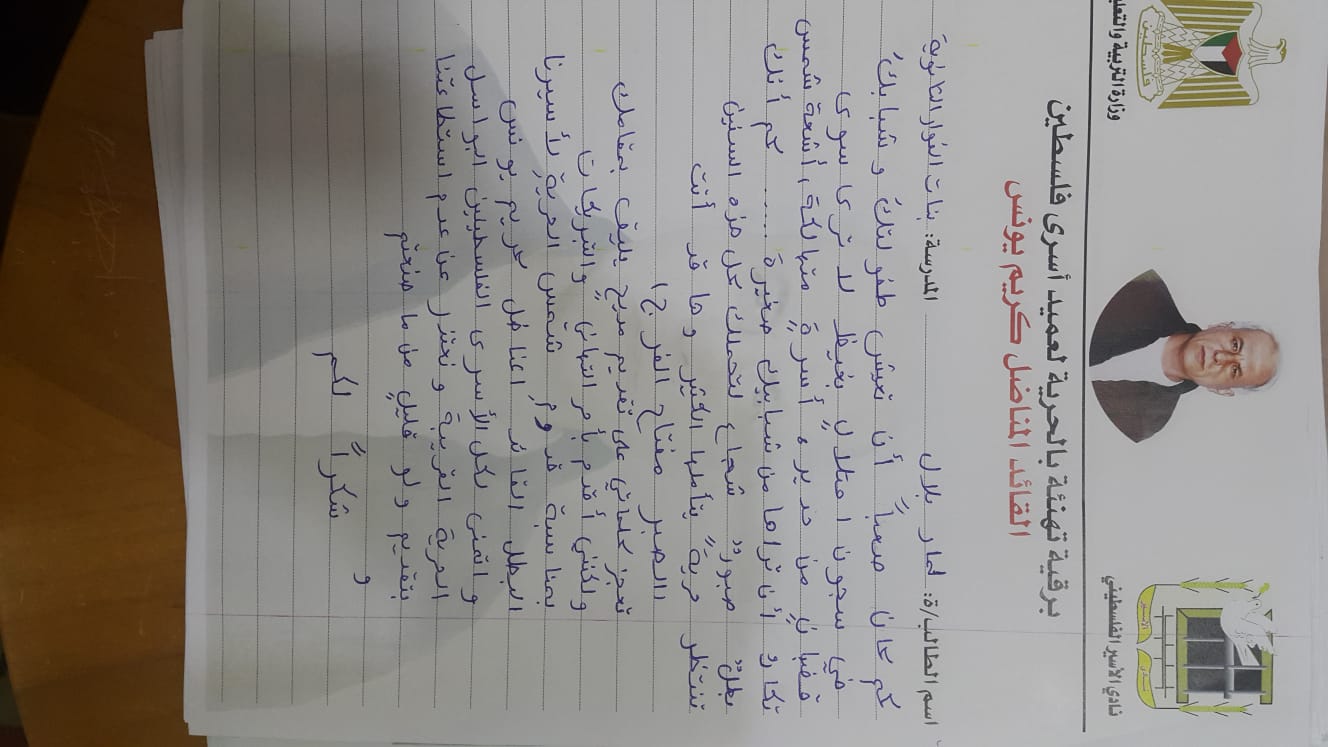 وزارة التربية والتعليم
نادي الأسير الفلسطيني
برقية تهنئة بالحرية لعميد أسرى فلسطين
القائد المناضل كريم يونس
اسم الطالب/ة: بلال المدرسة: بنات الثانوية
كم كان صعباً أن تعيش طفولتك وشبابك
في سجون احتلال بغيظ لا ترى سوى
قضبانٍ من حديد، أسرةٍ متهالكة، أشعة شمس
تكاد أن تراها من شبابيك صغيرة ..... كم أنك
بطلٌ صبورٌ شجاع لتحملك كل هذه السنين
تنتظر حريةٍ يتأملها الكثير وها قد أنت
"الصبر مفتاح الفرج"
تعجز كلماتي على تقديم مديح يليق بمقامك
ولكنني أقدم بأحر التهاني والتبريكات
بمناسبة قدوم شمس الحرية لأسيرنا
البطل القائد كريم يونس
واتمنى لكل الأسرى الفلسطينين البواسل
الحرية القريبة ونعتذر عن عدم استطاعتنا
بتقديم ولو قليلٍ من ما صنعتم
و
شكراً لكم